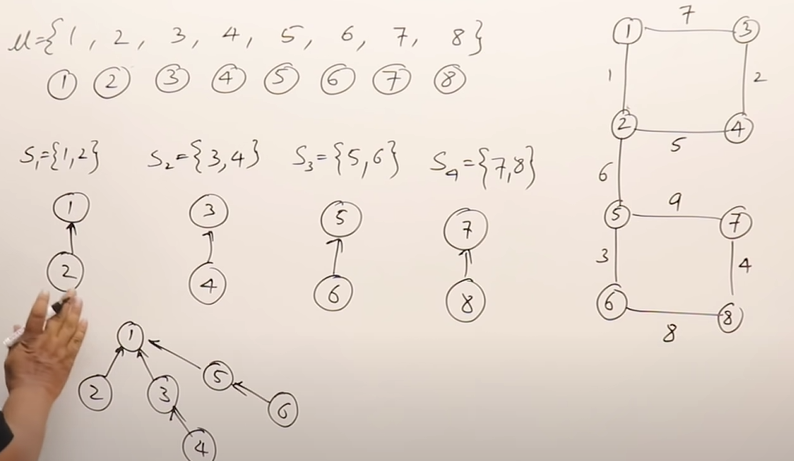 μ={1, 2, 3, 4, 5, 6, 7, 8}
1 2 3 4 5 6 7 8
S₁={1,2} S₂={3,4} S₃={5,6} S₄={7,8}
1 3 5 7
2 4 6 8
1
2 3 5 6
4
1 7 3
1 2
2 5 4
6
5 9 7
3 4
6 8 8